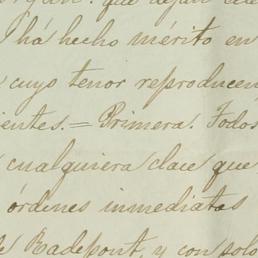 que dejan
há hecho mérito en
cuyo tenor reproducen
ientes.= Primera. Todos
cualquiera clace que
órdenes inmediatas
de Radepont, y con solo